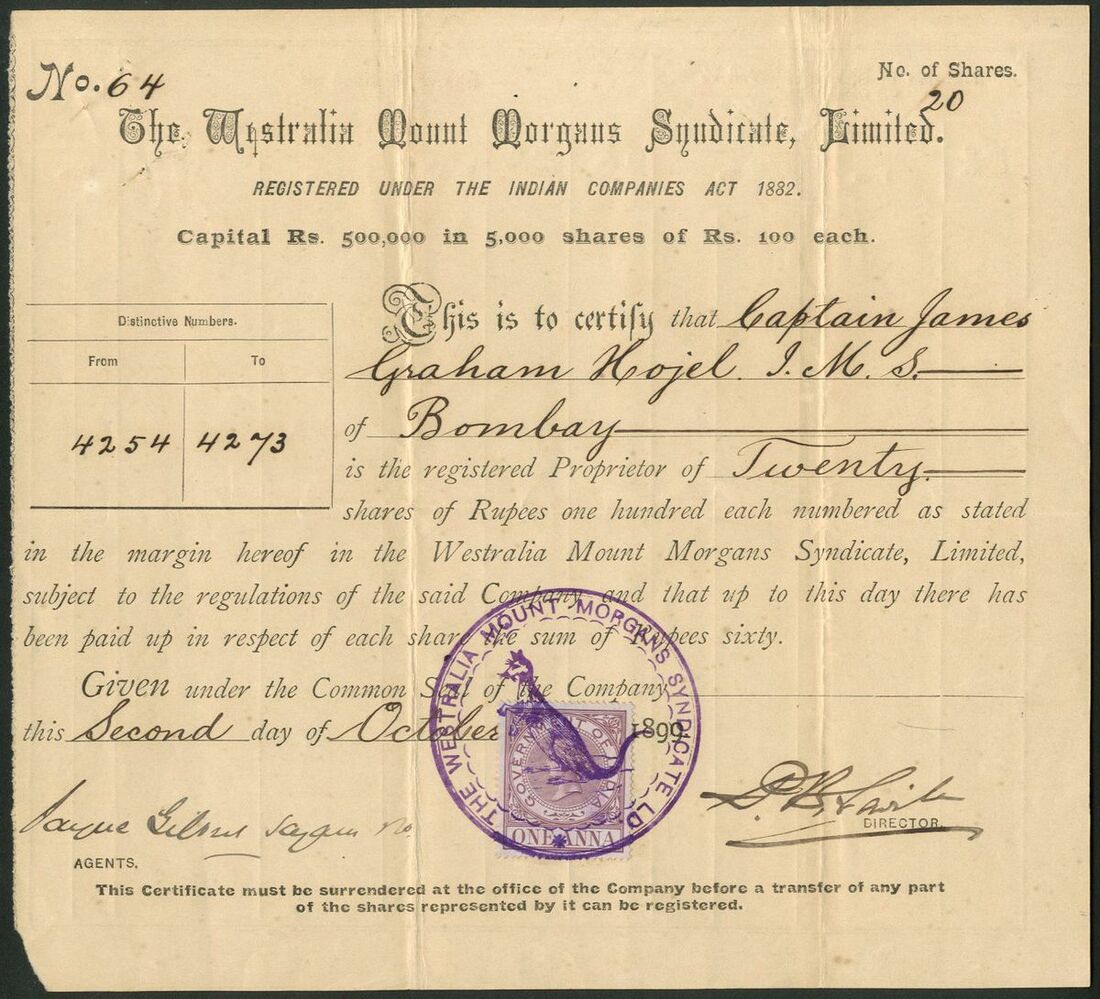 No. 64
No. of Shares.
20
The Westralia Mount Morgans Syndicate, Limited.
REGISTERED UNDER THE INDIAN COMPANIES ACT 1882.
Capital Rs. 500,000 in 5,000 shares of Rs. 100 each.
Distinctive Numbers.
From To
4254 4273
This is to certify that Captain James
Graham Hojel. I. M. S.
of Bombay
is the registered Proprietor of Twenty
shares of Rupees one hundred each numbered as stated
in the margin hereof in the Westralia Mount Morgans Syndicate, Limited,
subject to the regulations of the said Company and that up to this day there has
been paid up in respect of each share the sum of Rupees sixty.
Given under the Common Seal of the Company
this Second day of October 1899
THE WESTRALIA MOUNT MORGANS SYNDICATE LD.
GOVERNMENT OF INDIA
ONE ANNA
AGENTS.
DIRECTOR.
This Certificate must be surrendered at the office of the Company before a transfer of any part
of the shares represented by it can be registered.